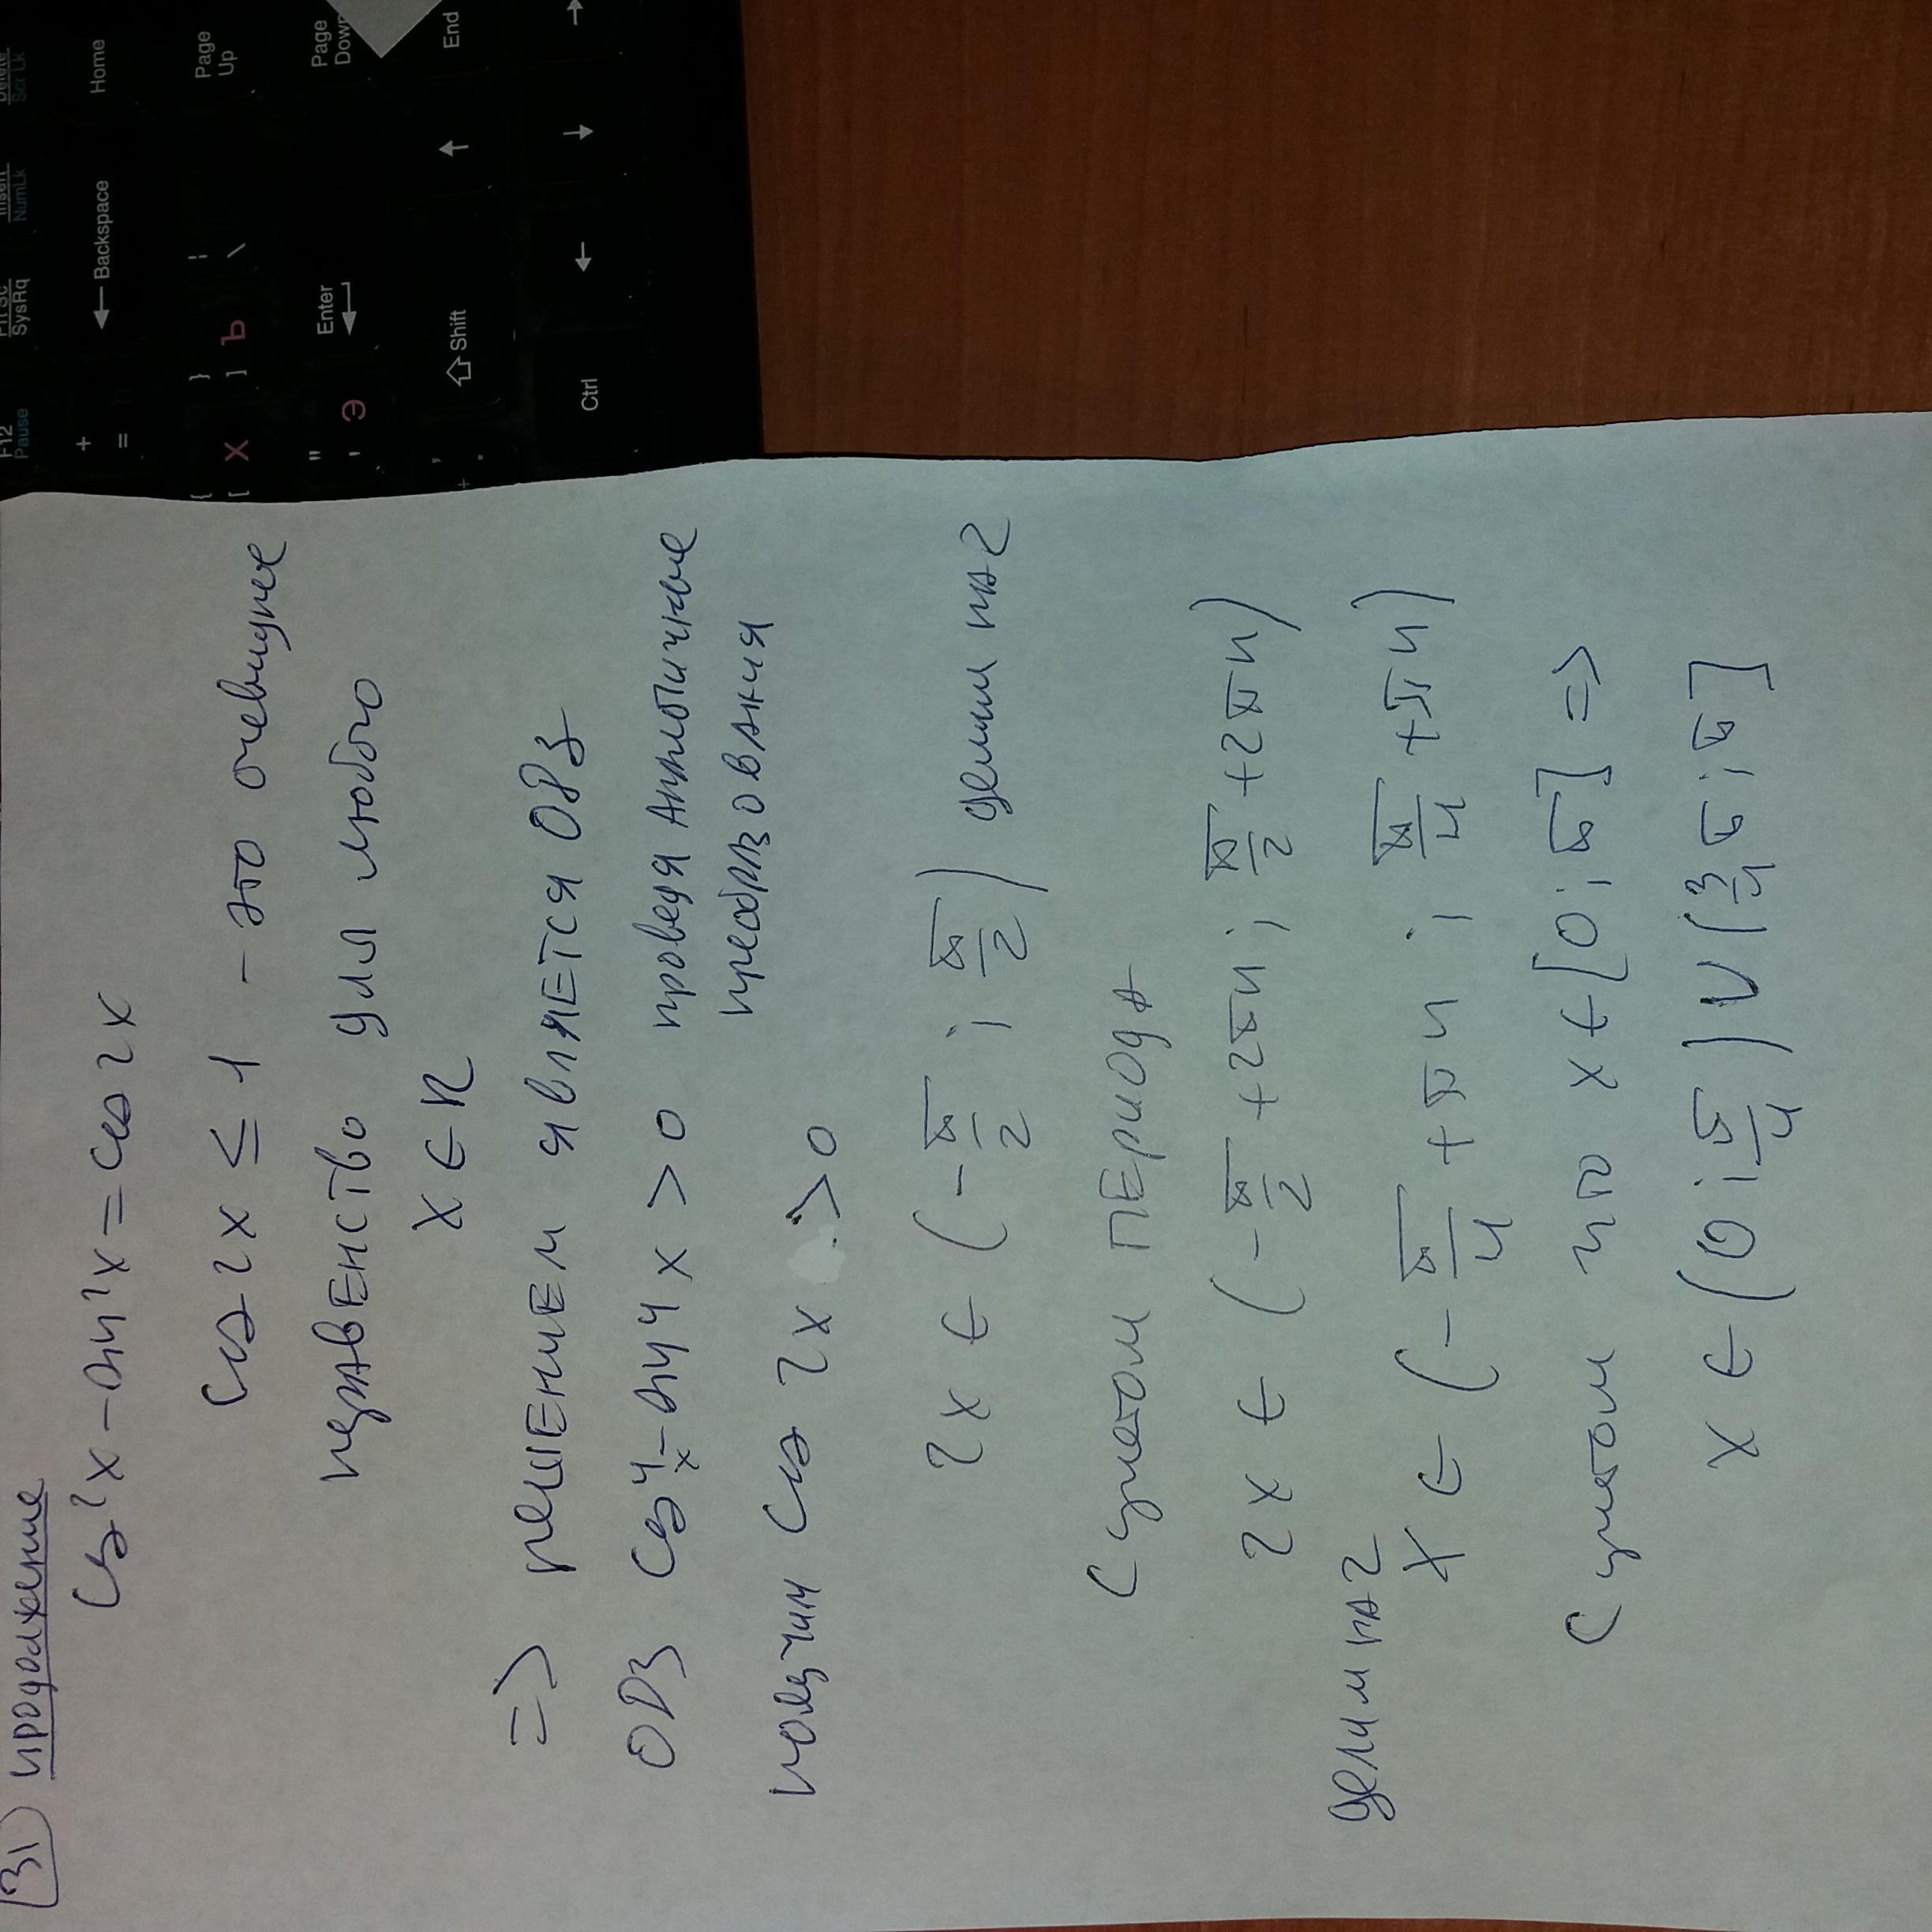 31) продолжение
cos²x - sin²x = cos 2x
cos 2x ≤ 1 - это очевидное
неравенство для любого
x ∈ R
=> решением является ОДЗ
ОДЗ cos⁴x - sin⁴x > 0 проведя аналогичные
преобразования
получим cos 2x > 0
2x ∈ (-π/2 ; π/2) делим на 2
С учетом периода
2x ∈ (-π/2 + 2πn ; π/2 + 2πn)
делим на 2
x ∈ (-π/4 + πn ; π/4 + πn)
С учетом что x ∈ [0 ; π] =>
x ∈ (0 ; π/4) ∪ (3/4 π ; π]
F12
Pause
PrtSc
SysRq
Insert
NumLk
Delete
Scr Lk
+
=
← Backspace
Home
{
[ Х
}
] Ъ
|
\
Page
Up
"
' Э
Enter
Page
Down
⇧ Shift
↑
End
Ctrl
←
↓
→